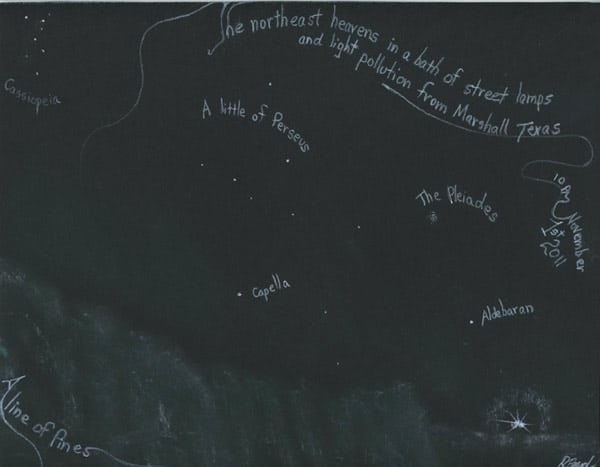 The northeast heavens in a bath of street lamps
and light pollution from Marshall Texas
Cassiopeia
A little of Perseus
The Pleiades
10 PM November
1st 2011
Capella
Aldebaran
A line of Pines